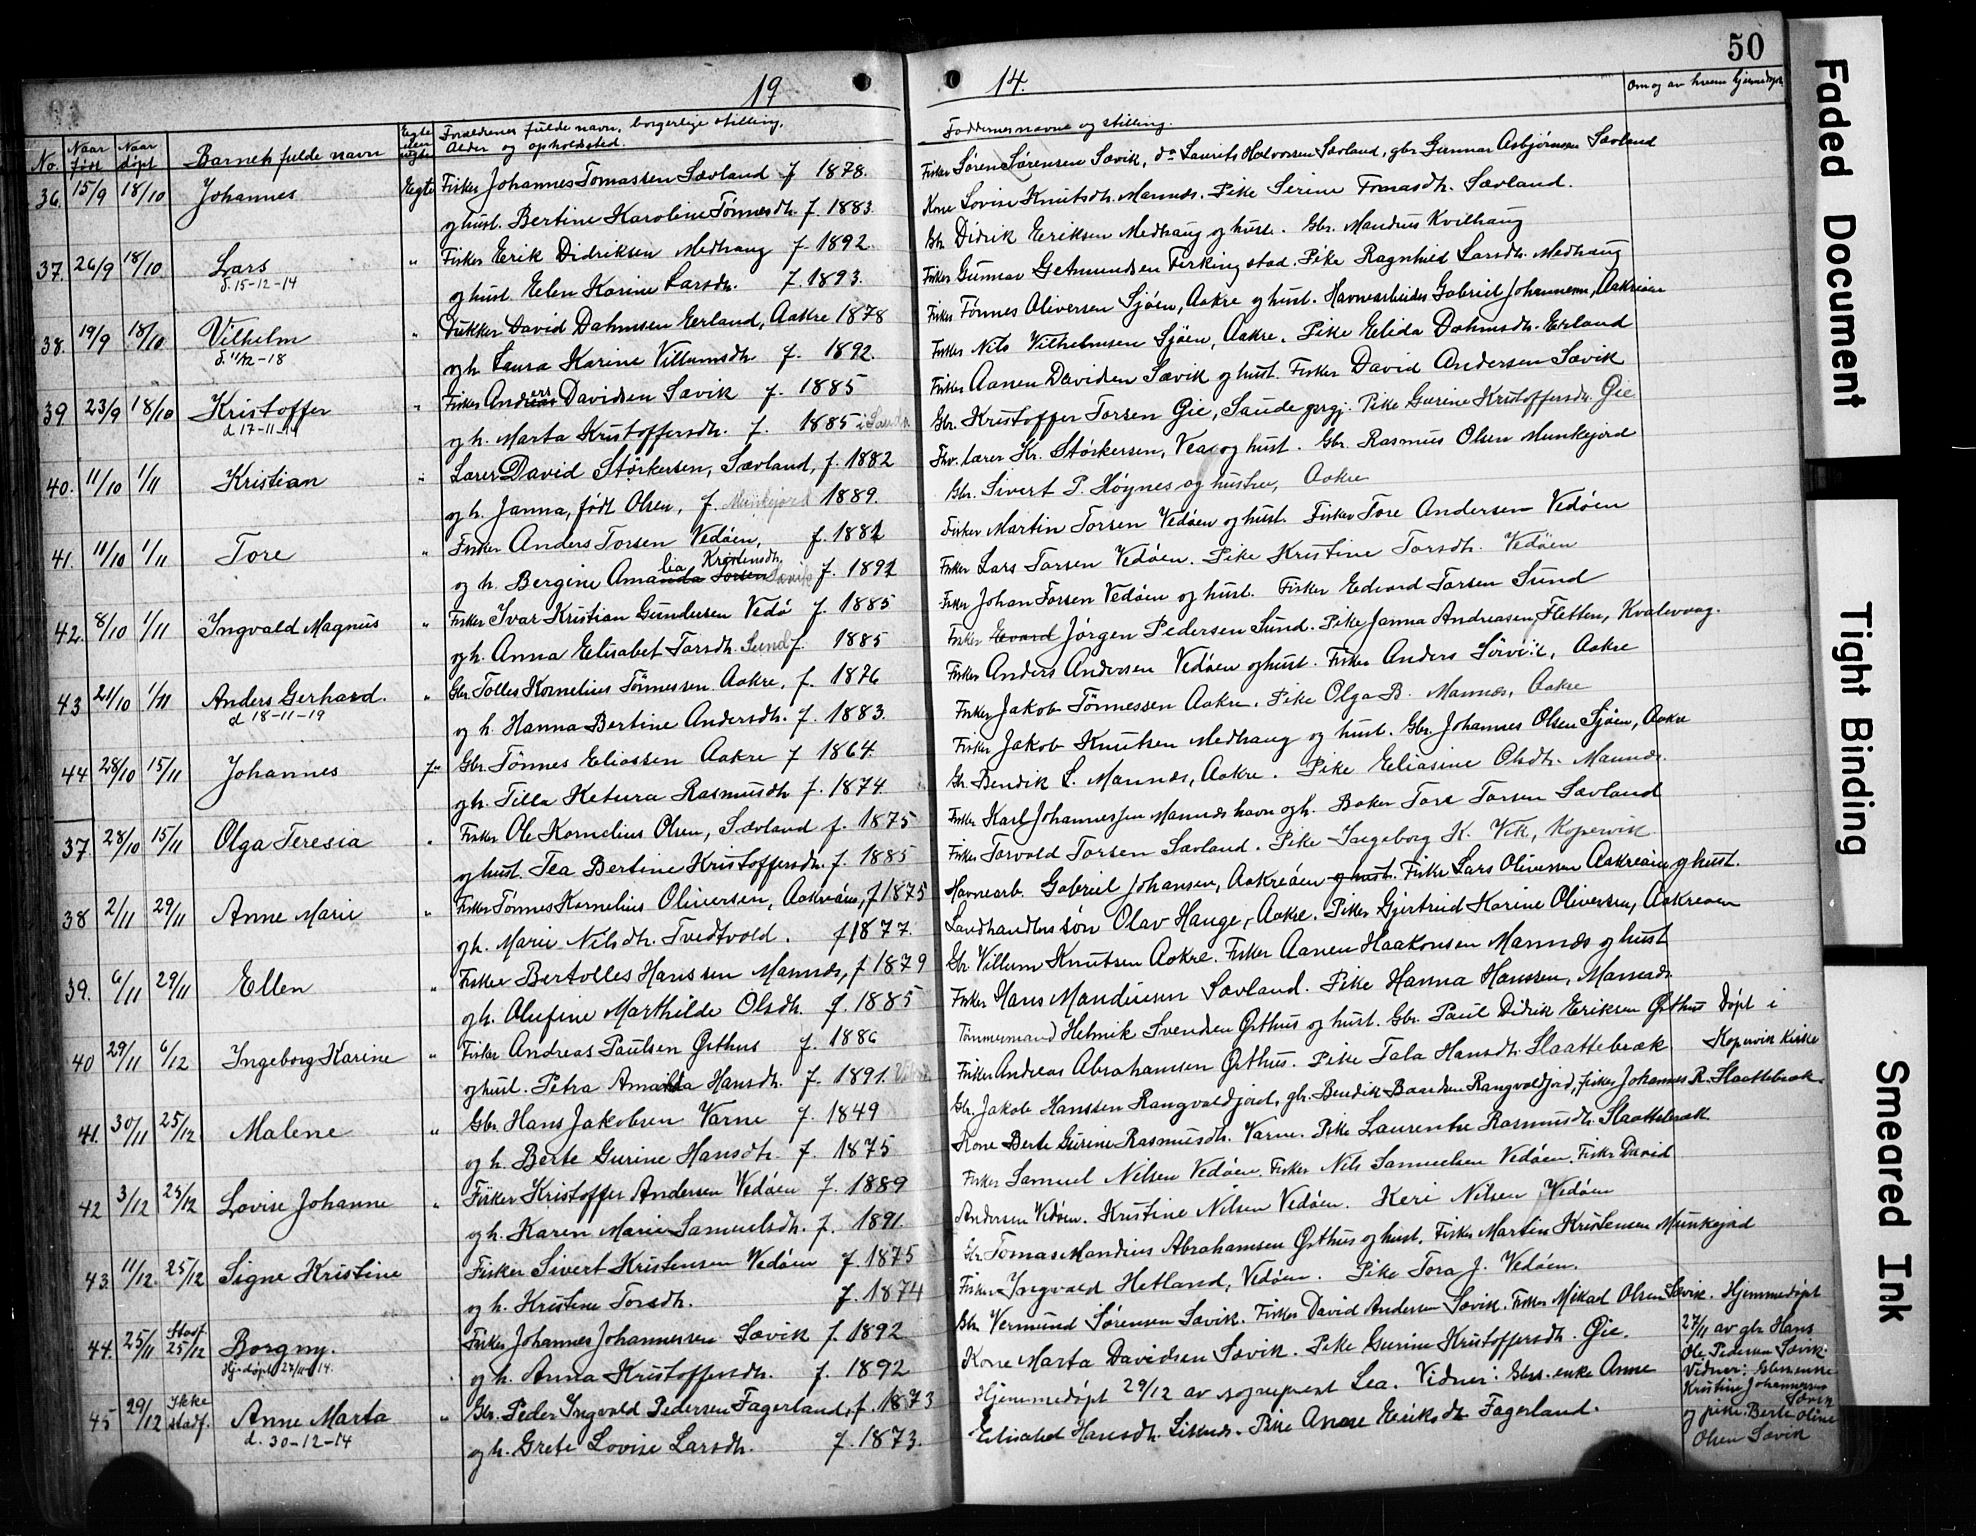 50
19
14.
No.
Naar født
Naar døpt
Barnets fulde navn
Egte eller uegte
Forældrenes fulde navn, borgerlige stilling,
Alder og opholdssted.
Faddernes navne og stilling.
Om og av hvem hjemmedøpt
36. 15/9 18/10 Johannes Egte Fisker Johannes Tomassen Sævland f 1878.
og hust. Bertine Karoline Tønnesdtr. f. 1883.
37. 26/9 18/10 Lars " Fisker Erik Didriksen Medhaug f. 1892.
d. 15-12-14
og hust. Elen Karine Larsdtr. f. 1893.
38. 19/9 18/10 Vilhelm " David Dahmsen Erland, Aakre 1878
d. 11/12-18
og h. Laura Karine Villumsdtr f. 1892.
39. 23/9 18/10 Kristoffer " Fisker Anders Davidsen Sævik f. 1885
d 17-11-14
og h. Marta Kristoffersdtr. f. 1885
40. 11/10 1/11 Kristian " Lærer David Størkersen, Sævland, f. 1882
og h. Janna, født Olsen, f. Munkejord 1889.
41. 11/10 1/11 Tore " Fisker Anders Torsen Vedøen, f. 1882
og h. Bergine Amalia Kristensdtr. f. 1892
42. 8/10 1/11 Ingvald Magnus " Fisker Ivar Kristian Gundersen Vedø f. 1885
og h. Anna Elisabet Torsdtr. Sund f. 1885
43 21/10 1/11 Anders Gerhard. " Gbr. Tolles Kornelius Tönnessen Aakre, f. 1876
d 18-11-19
og h. Hanna Bertine Andersdtr. f. 1883.
44 28/10 15/11 Johannes Gbr. Tønnes Eliassen Aakre f 1864.
og h. Tilla Ketura Rasmusdtr f. 1874
37. 28/10 15/11 Olga Teresia " Fisker Ole Kornelius Olsen, Sævland f. 1875
og hust. Tea Bertine Kristoffersdtr. f. 1885
38 2/11 29/11 Anne Marie " Fisker Tönnes Kornelius Oliversen, Aakreøen, f 1875
og h. Marie Nilsdtr. Tvedtvold. f 1877.
39. 6/11 29/11 Ellen " Fisker Bertolles Hanssen Mannes, f 1879
og h. Olufine Marthilde Olsdtr. f. 1885
40 29/11 6/12 Ingeborg Karine " Fisker Andreas Paulsen Østhus f. 1886
og hust. Petra Amanda Hansdtr. f. 1891.
41. 30/11 25/12 Malene " Gbr. Hans Jakobsen Varne f. 1849
og h. Berte Gurine Hansdtr. f. 1875
42 3/12 25/12 Lovise Johanne " Fisker Kristoffer Andersen Vedøen f. 1889
og h. Karen Marie Samuelsdtr. f. 1891.
43. 11/12. 25/12 Signe Kristine Fisker Sivert Kristensen Vedøen f. 1875
og h. Kristine Torsdtr. f. 1874
44. 25/11 Stadf 25/12 Borgny. Fisker Johannes Johannessen Sævik f. 1892
Hjdøpt 27/11-14.
og h. Anna Kristoffersdtr. f. 1892
45 29/12 Ikke stadf. Anne Marta " Gbr. Peder Ingvald Pedersen Fagerland, f. 1873
d. 30-12-14
og h. Grete Lovise Larsdtr. f. 1873.
Fisker Søren Sørensen Sævik, do Laurits Halvorsen Sævland, gbr Gunnar Asbjørnsen Sævland
Kone Lovise Knutsdtr. Mannes. Pike Serine Tomasdtr. Sævland.
Gbr Didrik Eriksen Medhaug og hust. Gbr. Mandius Kvilhaug
Fisker Gunnar Ferkingstad. Pike Ragnhild Larsdtr. Medhaug
Fisker Tønnes Oliversen Sjøen, Aakre og hust. Havnearbeider Gabriel Johannesen, Aakreøen
Fisker Nils Vilhelmsen Sjøen, Aakre. Pike Elida Dahmsdtr. Erland
Fisker Aanen Davidsen Sævik og hust. Fisker David Andersen Sævik
Gbr. Kristoffer Torsen Gie, Saude prgj. Pike Gurine Kristoffersdtr. Gie
Fhv. lærer Kr. Størkersen, Vea og hust. Gbr. Rasmus Olsen Munkejord
Gbr. Sivert P. Høynes og hustru, Aakre
Fisker Martin Torsen Vedøen og hust. Fisker Tore Andersen Vedøen
Fisker Lars Torsen Vedøen. Pike Kristine Torsdtr. Vedøen
Fisker Johan Torsen Vedøen og hust. Fisker Edvard Torsen Sund
Fisker Jörgen Pedersen Sund. Pike Janna Andreasen, Fletten, Kvalevaag.
Fisker Anders Andersen Vedøen og hust. Fisker Anders Aakre
Fisker Jakob Tönnessen Aakre. Pike Olga B. Mannes, Aakre
Fisker Jakob Knutsen Medhaug og hust. Gbr. Johannes Olsen Sjøen, Aakre
Gbr. Bendik L. Mannes, Aakre. Pike Eliasine Olsdtr. Mannes.
Fisker Karl Johannessen Mannes havn og h. Baker Tore Torsen Sævland
Fisker Torvald Torsen Sævland. Pike Ingeborg K. Vik, Kopervik
Havnearb. Gabriel Johansen, Aakreøen og hust. Fisker Lars Oliversen Aakreøen og hust.
Landhandlers søn Olav Hauge, Aakre. Pike Gjertrud Karine Oliversen, Aakreøen
Gbr Villum Knutsen Aakre. Fisker Aanen Haakonsen Mannes og hust
Fisker Hans Mandiusen Sævland. Pike Hanna Hanssen, Mannes.
Tømmermand Helmik Svendsen Østhus og hust. Gbr. Paul Didrik Eriksen Østhus Døpt i
Fisker Andreas Abrahamsen Østhus. Pike Tala Hansdtr. Slaattebræk Kopervik kirke
Gbr. Jakob Hanssen Rangvaldjord, gbr. Bendik Baardsen Rangvaldjord, fisker Johannes R. Slaattebræk.
Kone Berte Gurine Rasmusdtr. Varne. Pike Laurentse Rasmusdtr. Slaattebræk
Fisker Samuel Nilsen Vedøen. Fisker Nils Samuelsen Vedøen. Fisker David
Andersen Vedøen. Kristine Nilsen Vedøen. Keri Nilsen Vedøen
Gbr. Tomas Mandius Abrahamsen Østhus og hust. Fisker Martin Kristensen Munkejord
Fisker Ingvald Hetland, Vedøen. Pike Tora J. Vedøen.
Gbr. Vermund Sørensen Sævik. Fisker David Andersen Sævik. Fisker Mikal Olsen Sævik. Hjemmedøpt
27/11 av gbr. Hans
Kone Marta Davidsen Sævik. Pike Gurine Kristoffersdtr. Gie.
Ole Pedersen Sævik.
Vidner: Gbrs. enke
Hjemmedøpt 29/12 av sogneprest Lea. Vidner: Gbrs. enke Anne
Kristine Johannessen Sævik
Elisabet Hansdtr. Pike Anne Eriksdtr. Fagerland.
og pike Berte Oline
Olsen Sævik
Faded Document
Tight Binding
Smeared Ink